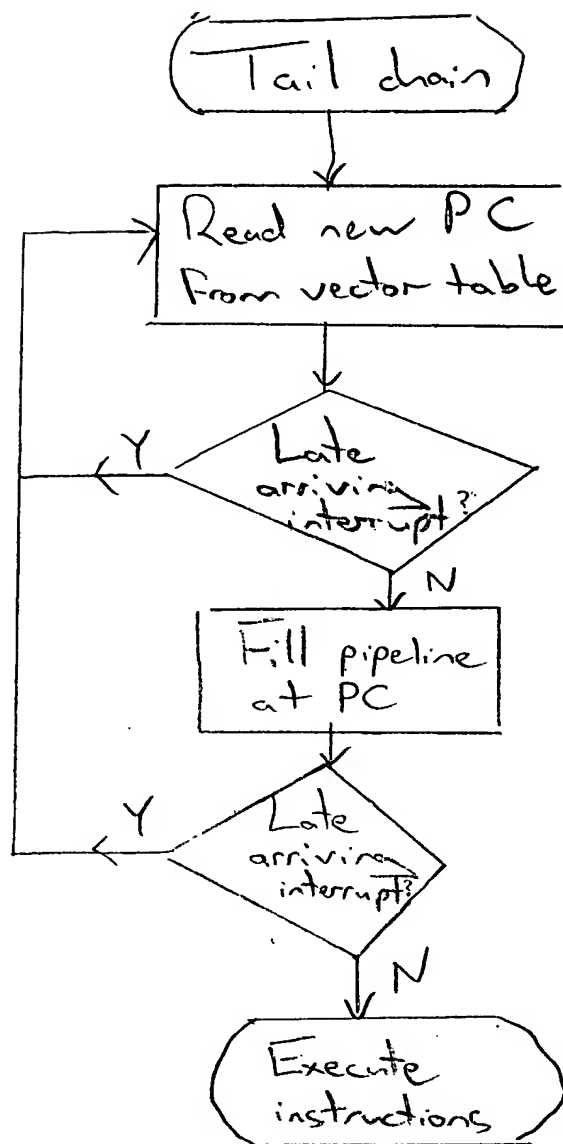 Tail chain
Read new PC
From vector table
Y
Late
arriving
interrupt?
N
Fill pipeline
at PC
Y
Late
arriving
interrupt?
N
Execute
instructions